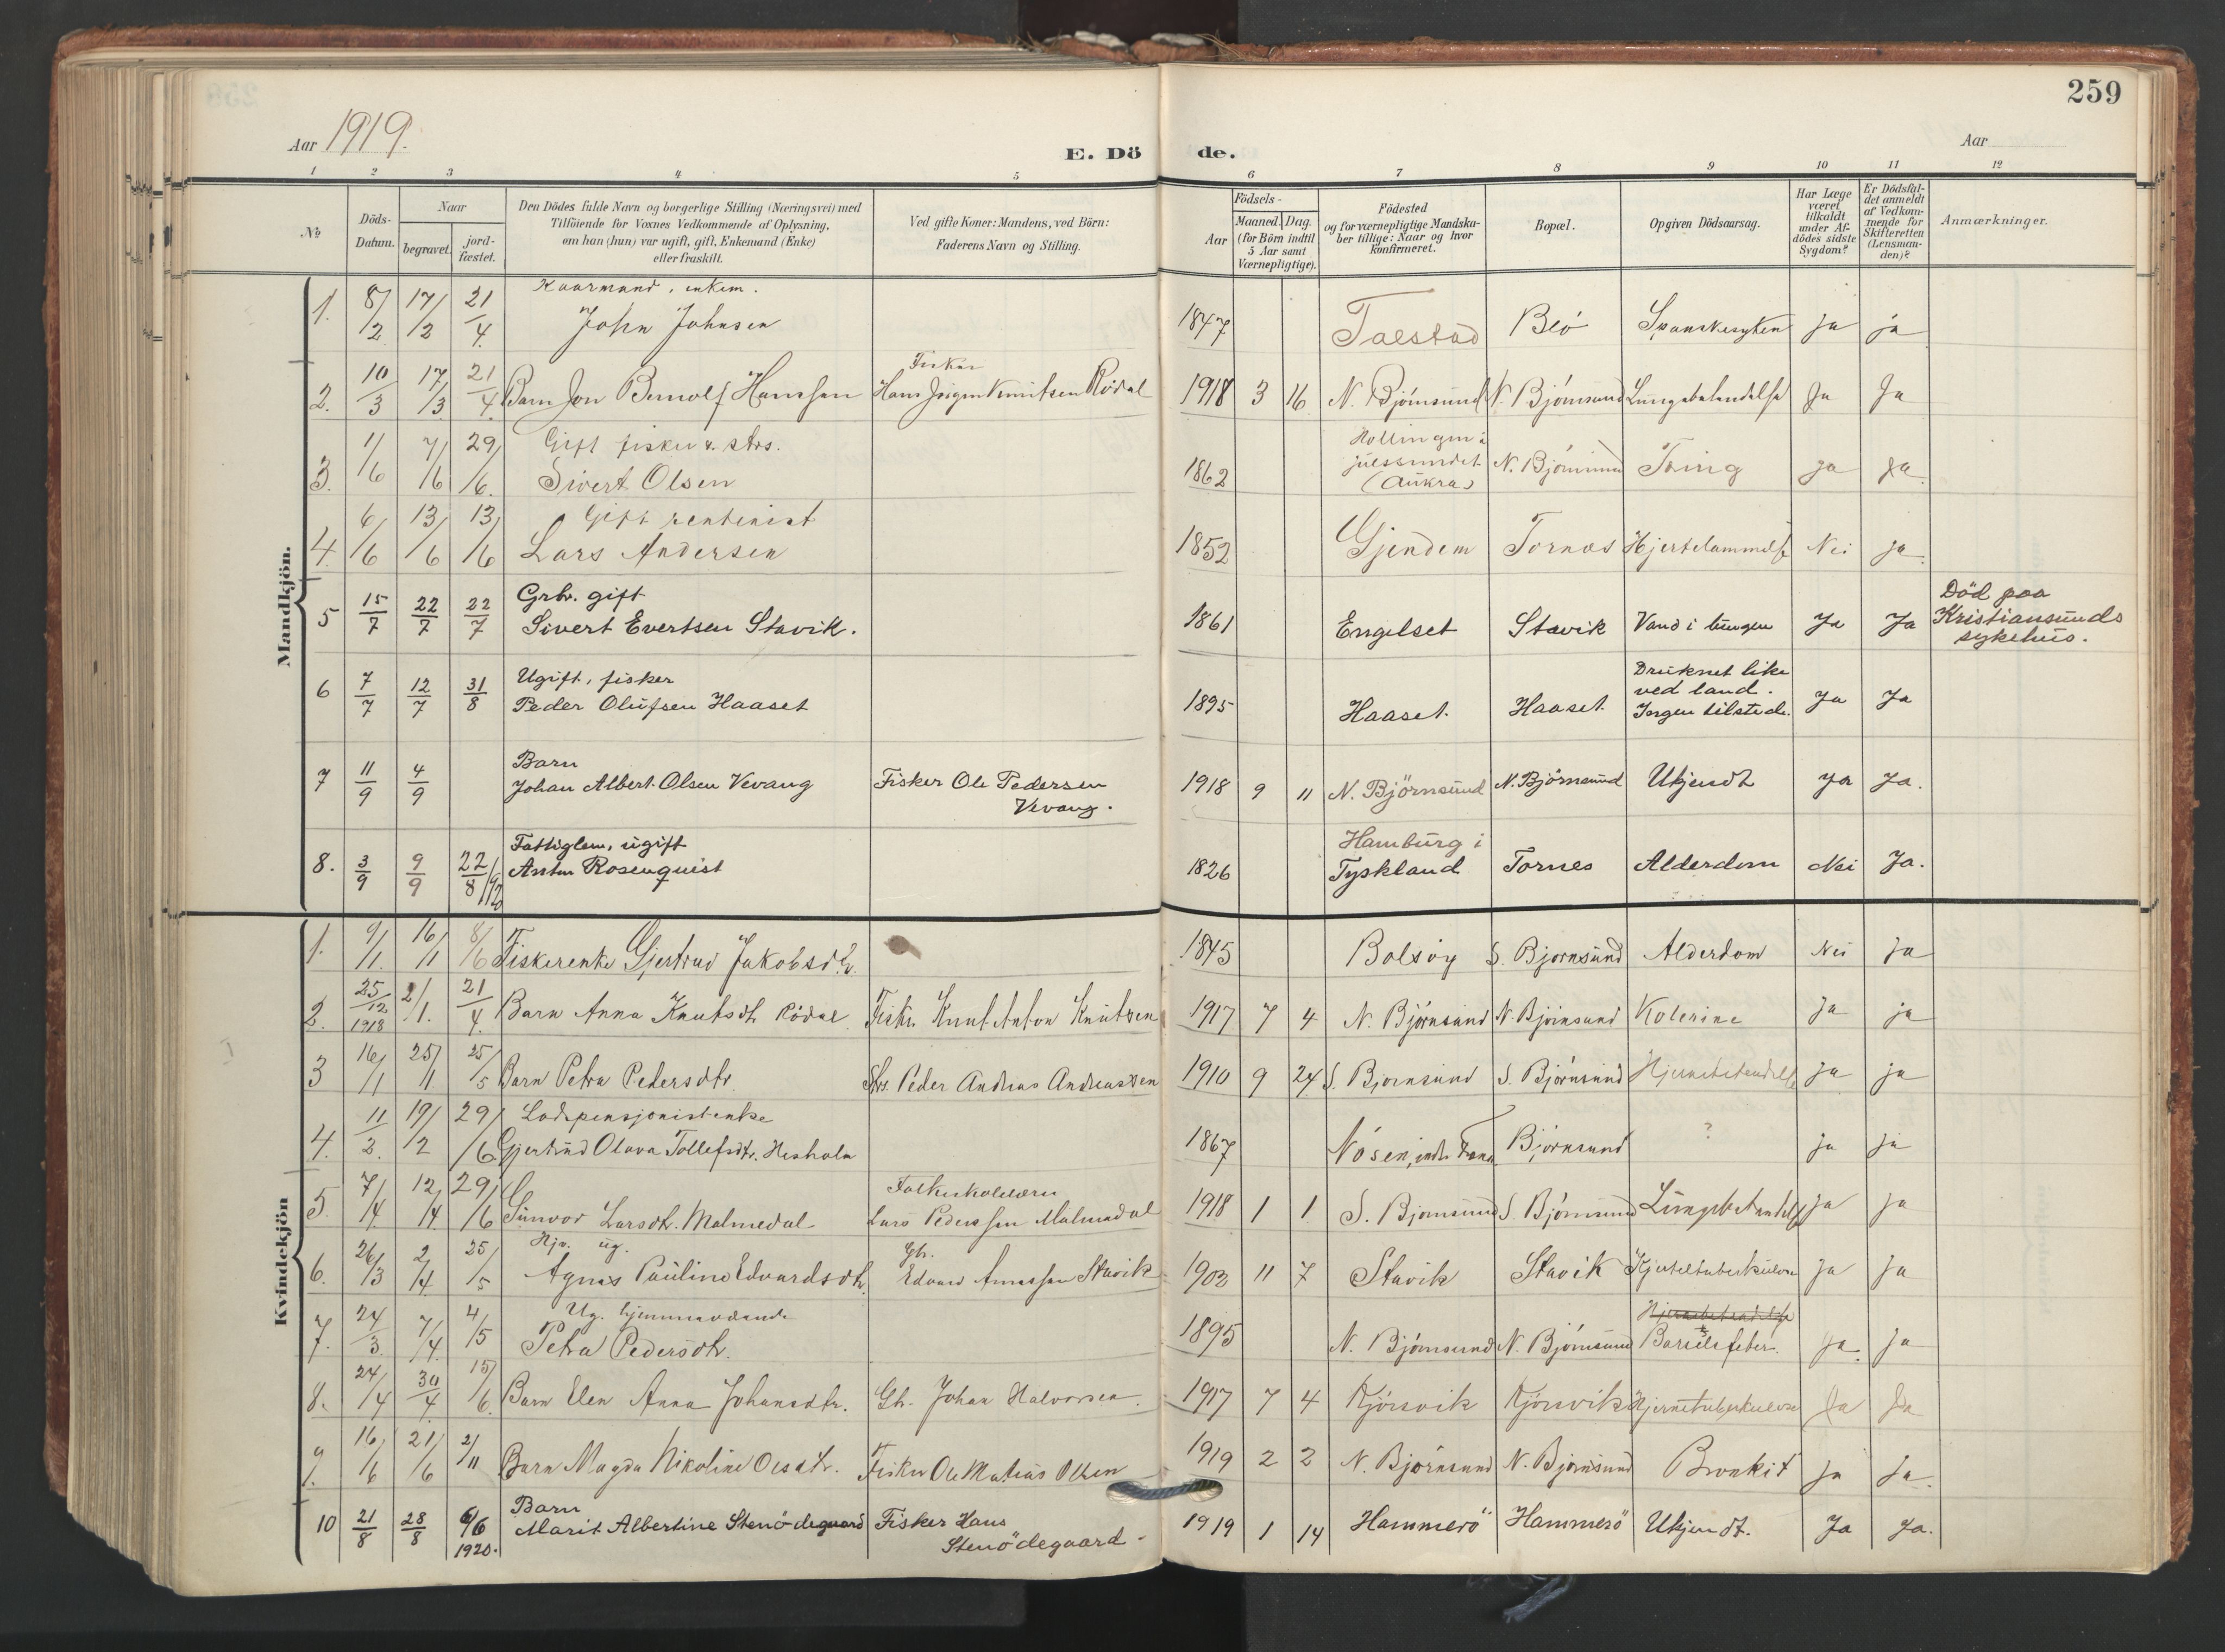 259
Aar 1919.
E. Dö de.
Aar
1 2 3 4 5 6 7 8 9 10 11 12
No
Döds-Datum.
Naar
begravet.
jord-fæstet.
Den Dödes fulde Navn og borgerlige Stilling (Næringsvei) med
Tilföiende for Voxnes Vedkommende af Oplysning,
om han (hun) var ugift, gift, Enkemand (Enke)
eller fraskilt.
Ved gifte Koner: Mandens, ved Börn:
Faderens Navn og Stilling.
Födsels-
Aar
Maaned. Dag.
(for Börn indtil
5 Aar samt
Værnepligtige).
Födested
og for værnepligtige Mandska-
ber tillige: Naar og hvor
konfirmeret.
Bopæl.
Opgiven Dödsaarsag.
Har Læge
været
tilkaldt
under Af-
dödes sidste
Sygdom?
Er Dödsfal-
det anmeldt
af Vedkom-
mende for
Skifteretten
(Lensman-
den)?
Anmærkninger.
Mandkjön.
Kaarmand, enkem.
1. 8/2 17/2 21/4 John Johnsen 1847 Talstad Beö Spanskesyken ja ja
Fisker
2. 10/3 17/3 21/4 Barn Jon Bernolf Hanssen Hans Knutsen Rödal 1918 3 16 N. Björnsund N. Björnsund Lungebetendelse Ja Ja
Gift fisker & strs. Hollingen i
3. 1/6 7/6 29/6 Sivert Olsen 1862 julsundet (Aukra) N. Björnsund Tæring ja ja
Gift rentenist
4. 6/6 13/6 13/6 Lars Andersen 1852 Gjendem Tornes Hjertelammelse Nei ja
Grbr. gift Död paa
5 15/7 22/7 22/7 Sivert Evertsen Stavik. 1861 Engelset Stavik Vand i lungen Ja Ja Kristiansunds
sykehus.
Ugift, fisker Druknet like
6 7/7 12/7 31/8 Peder Olufsen Haaset 1895 Haaset. Haaset ved land. Ja Ja
Ingen tilstede.
Barn
7 11/9 4/9 Johan Albert Olsen Vevang Fisker Ole Pedersen 1918 9 11 N. Björnsund N. Björnsund Ukjendt ja Ja.
Vevang.
Fattiglem, ugift Hamburg i
8. 3/9 9/9 22/8 1920 Anton Rosenquist 1826 Tyskland Tornes Alderdom Nei Ja.
Kvindekjön
1. 9/1 16/1 8/6 Fiskerenke Gjertrud Jakobsdtr. 1845 Bolsöy S. Björnsund Alderdom Nei ja
2. 25/12 1918 2/1. 21/4. Barn Anna Knutsdtr Rödal Fisker Knut Anton Knutsen 1917 7 4 N. Björnsund N. Björnsund Kolerine Ja ja
3 16/1 25/1. 25/5 Barn Petra Pedersdtr Strs. Peder Andreas Andreassen 1910 9 24 S. Björnsund S. Björnsund Hjernebetendelse ja ja
Lodspensjonistenke
4. 11/2. 19/2 29/6 Gjertrud Olava Tollefsdtr. Hesholm 1867 Nösen, indre Fræna Björnsund ? ja ja
Folkeskolelærer
5. 7/4 12/4. 29/6 Sunvor Larsdtr. Malmedal Lars Pederssen Malmedal 1918 1 1 S. Björnsund S. Björnsund Lungebetendelse ja ja
Hjv. ug. Gbr.
6. 26/3 2/4 25/5 Agnes Pauline Edvardsdtr. Edvard Stavik 1903 11 7 Stavik Stavik ja ja
Ug. hjemmeværende Hjernebetendelse
7. 24/3. 7/4. 4/5 Petra Pedersdtr. 1895 N. Björnsund N. Björnsund Barselsfeber. ja. ja
8. 24/4 30/4 15/6. Barn Elen Anna Johansdtr. Gb. Johan Halvorsen. 1917 7 4 Kjörsvik Kjörsvik Hjernetuberkulose Ja Ja
9. 16/6 21/6 2/11 Barn Magda Nikoline Olsdtr. Fisker Ole Matias Olsen 1919 2 2 N. Björnsund N. Björnsund Bronkit ja Ja.
Barn
10 21/8 28/8 6/6 1920. Marit Albertine Stenödegaard Fisker Hans 1919 1 14 Hammerö Hammerö Ukjendt. Ja Ja.
Stenödegaard